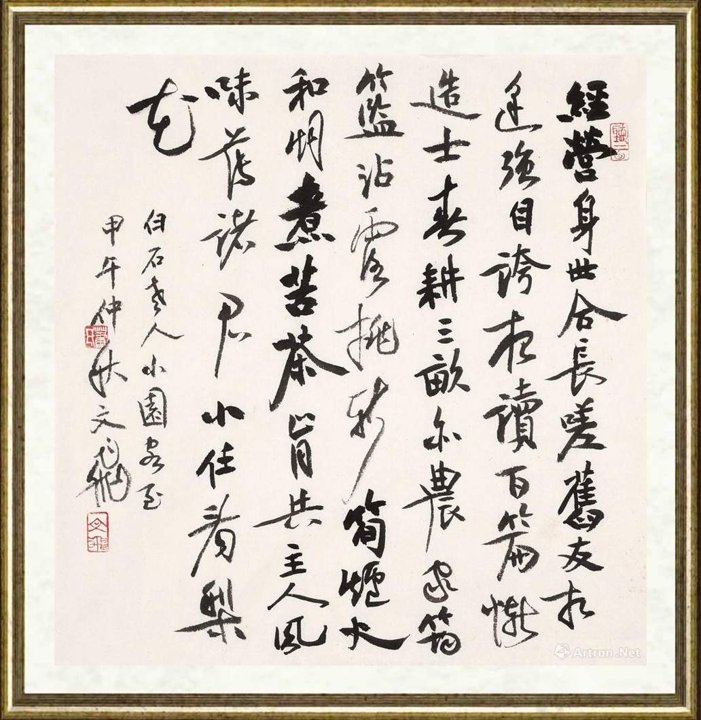 經營身世合長嗟舊友相
逢強自誇夜讀百篇慚
造士春耕三畝亦農家筠
籃沾露挑新筍爐火
和烟煮苦茶肯共主人風
味薄諸君小住看梨
花
白石老人小園客至
甲午仲秋文飛
Artron.Net